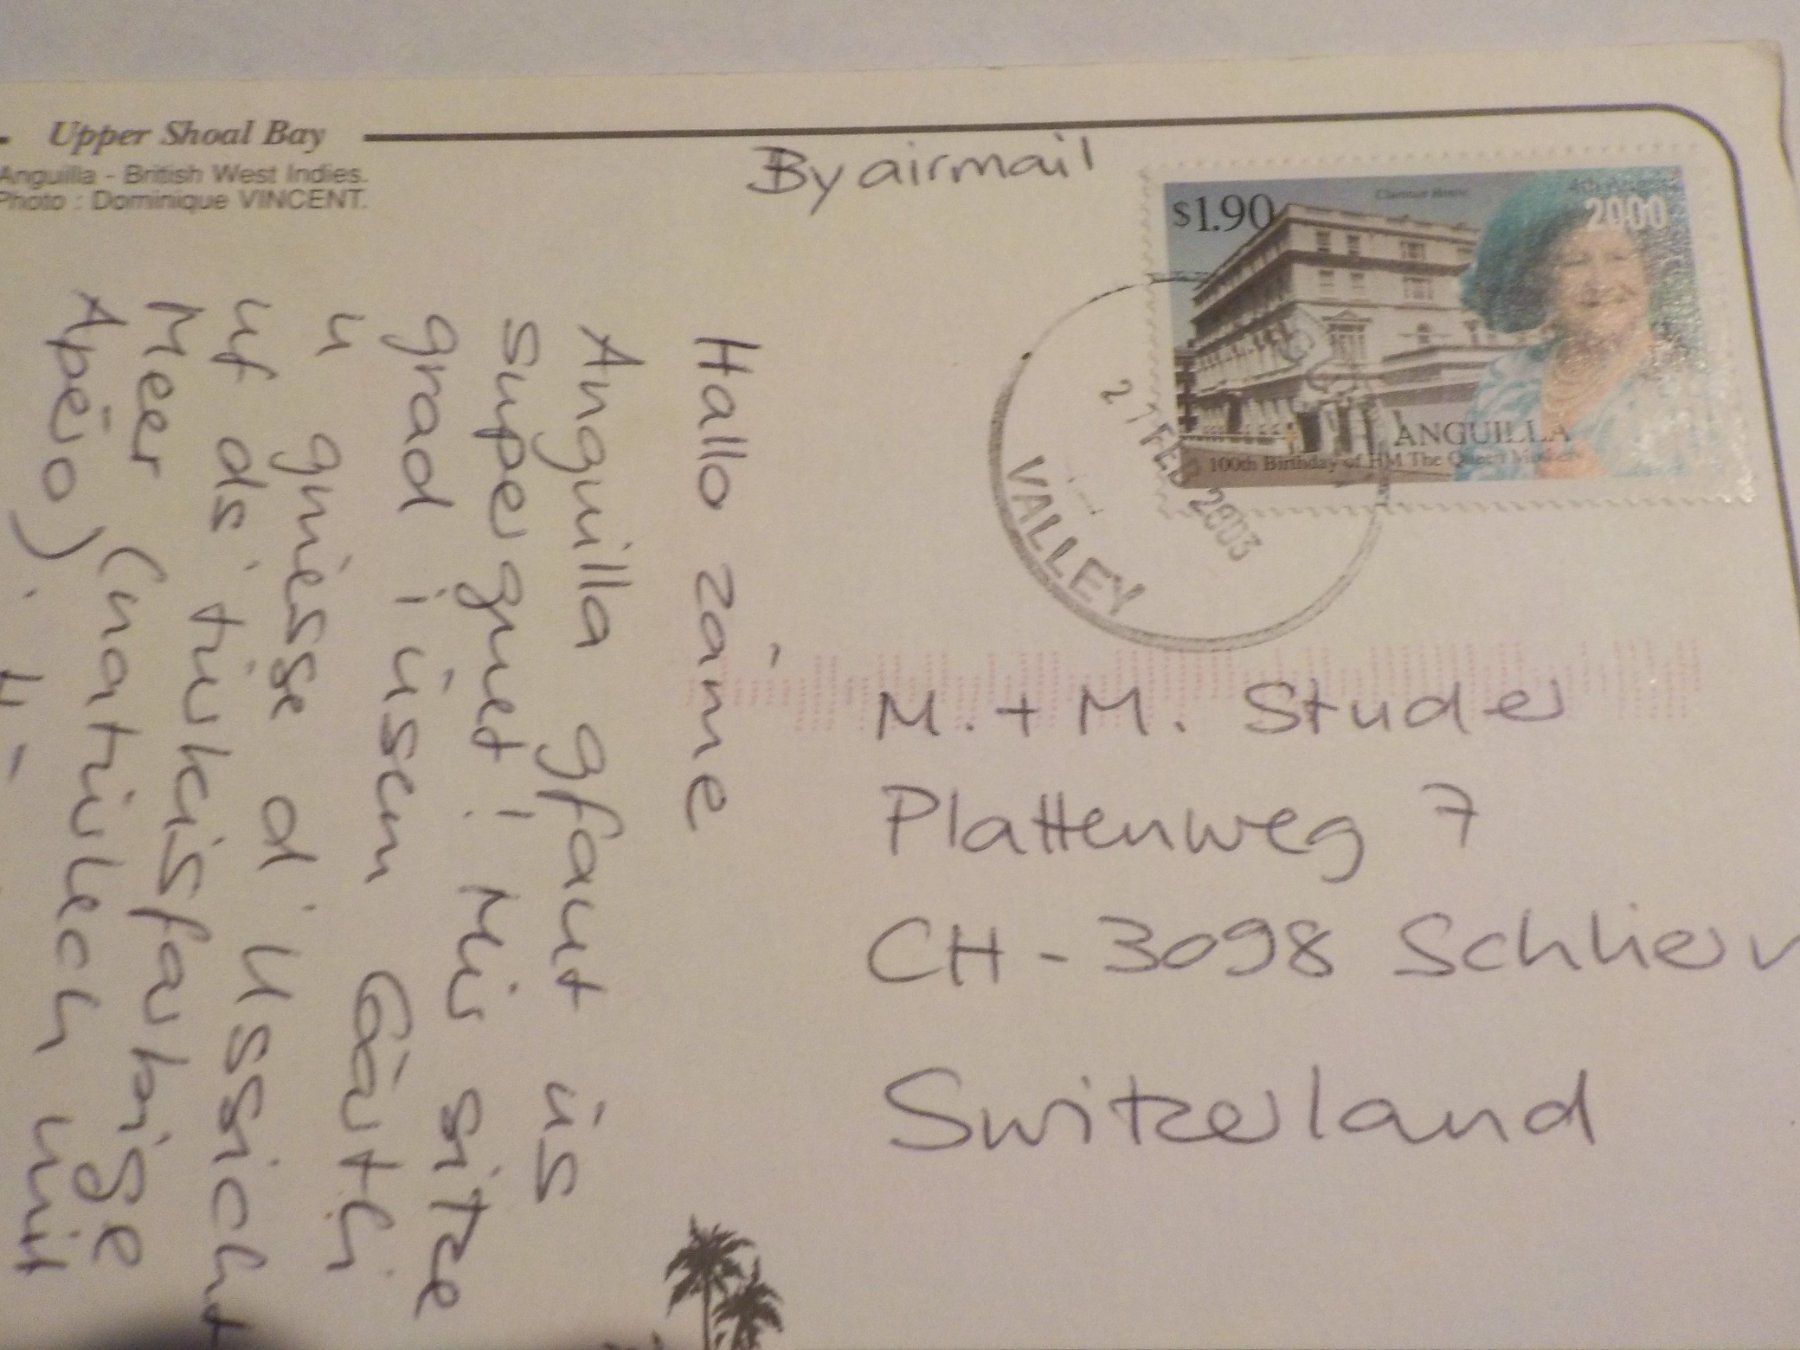 Upper Shoal Bay
Anguilla - British West Indies.
Photo : Dominique VINCENT.
By airmail
$1.90
Clarence House
4th August
2000
ANGUILLA
100th Birthday of HM The Queen Mother
VALLEY
FEB 2003
M. + M. Studer
Plattenweg 7
CH - 3098 Schliern
Switzerland
Hallo zäme
Anguilla gfaut üs
superguet! Mir sitze
grad i üsem Gärtli
u gniesse d'Ussicht
uf ds' türkisfarbige
Meer (natürlech mit
Apéro).